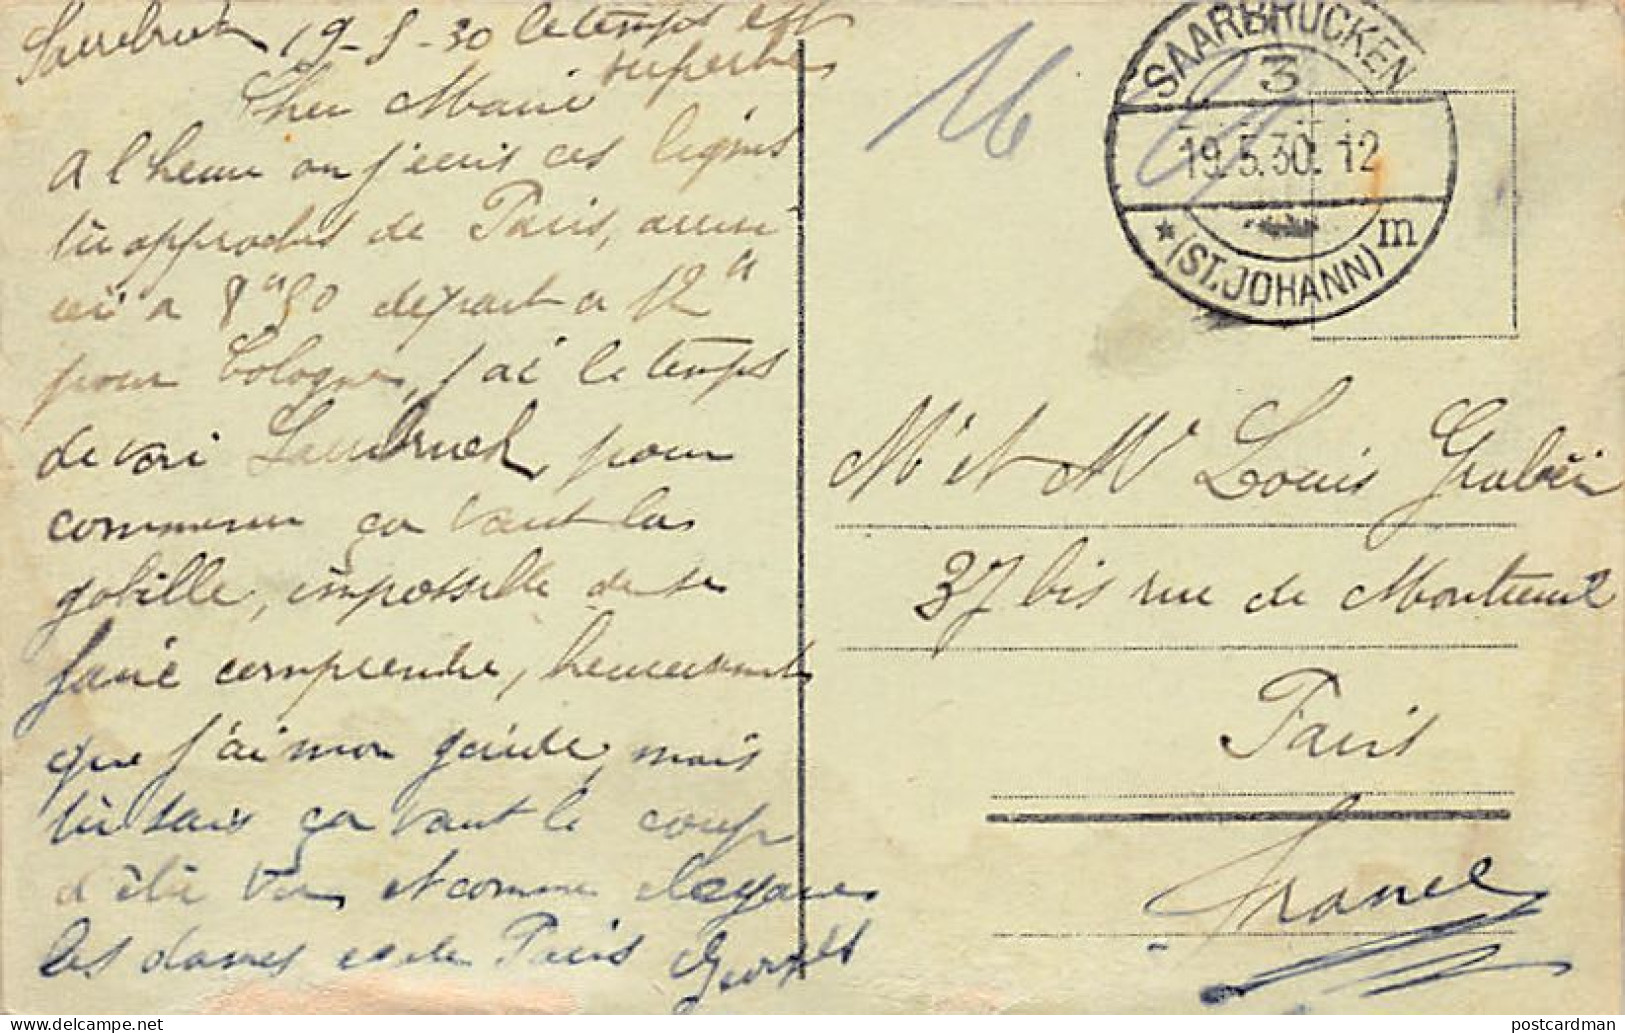 Sarrebruck 19-5-30 le temps est
superbe
Cher Marie
A l'heure ou j'ecris ces lignes
tu approches de Paris, arrivé
ici a 8"50 départ a 12"
pour Cologne, j'ai le temps
de voir Sarrebruck, pour
commencer ça vaut las
gobille, impossible de se
faire comprendre, heureusement
que j'ai mon guide, mais
tu sais ça vaut le coup
d'étre vu et comme
les dames Paris Georges
16
SAARBRÜCKEN
3
19.5.30. 12
m
* (ST. JOHANN)
Mr et Me Louis
37 bis rue de Montreuil
Paris
France
postcardman